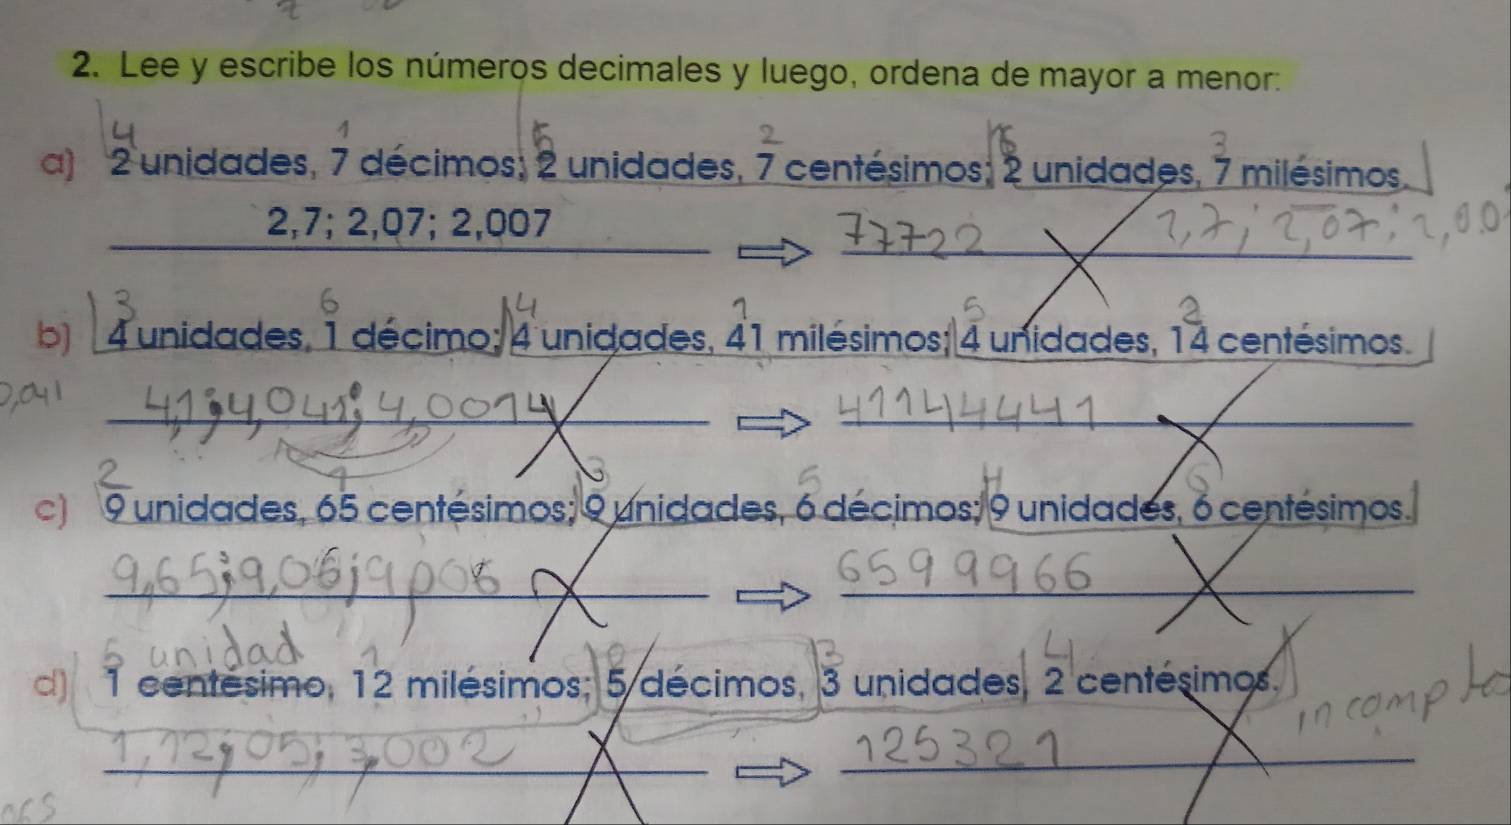 2. Lee y escribe los números decimales y luego, ordena de mayor a menor:
4 1 5 2 6 3
a) 2 unidades, 7 décimos; 2 unidades, 7 centésimos; 2 unidades, 7 milésimos.
2,7; 2,07; 2,007 77722 2,7; 2,07; 2,00
3 6 4 1 5 2
b) 4 unidades, 1 décimo; 4 unidades, 41 milésimos; 4 unidades, 14 centésimos.
0,041 4,1; 4,041; 4,0014 41144441
2 1 3 5 4 6
c) 9 unidades, 65 centésimos; 9 unidades, 6 décimos; 9 unidades, 6 centésimos.
9,65; 9,06; 9,006 6599966
5 unidad 1 3 4
d) 1 centésimo, 12 milésimos; 5 décimos, 3 unidades, 2 centésimos.
incompleto
1,12; 05; 3,002 125321